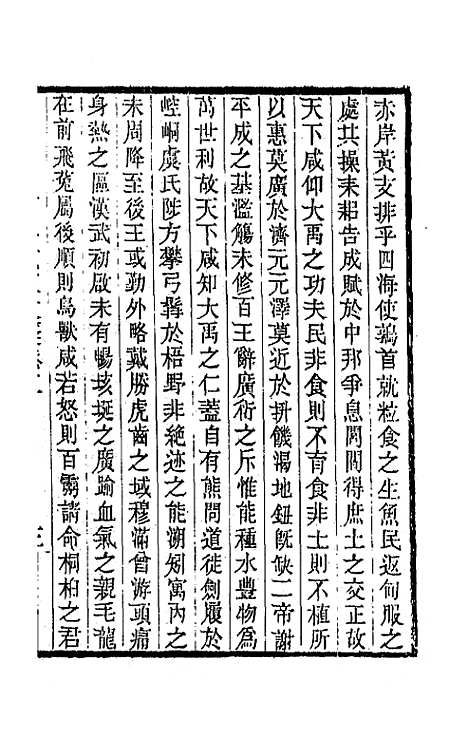 赤岸黃支排乎四海使鶉首就粒食之生魚民返甸服之
處共操耒耜告成賦於中邦爭息閱閭得庶土之交正故
天下咸仰大禹之功夫民非食則不育食非土則不植所
以惠莫廣於濟元元澤莫近於拼饑溺地鈕旣缺二帝謝
平成之基濫觴未修百王辭廣衍之斥惟能種水豐物為
萬世利故天下咸知大禹之仁蓋自有熊問道徒劍履於
崆峒虞氏陟方攀弓髯於梧野非絶迹之能溯矧寓内之
未周降至後王或勤外略戴勝虎齒之域穆滿曾游頭痛
身熱之區漢武初啟未有暢垓埏之廣踰血氣之親毛龍
在前飛菟屬後順則鳥獸咸若怒則百靈請命桐柏之君